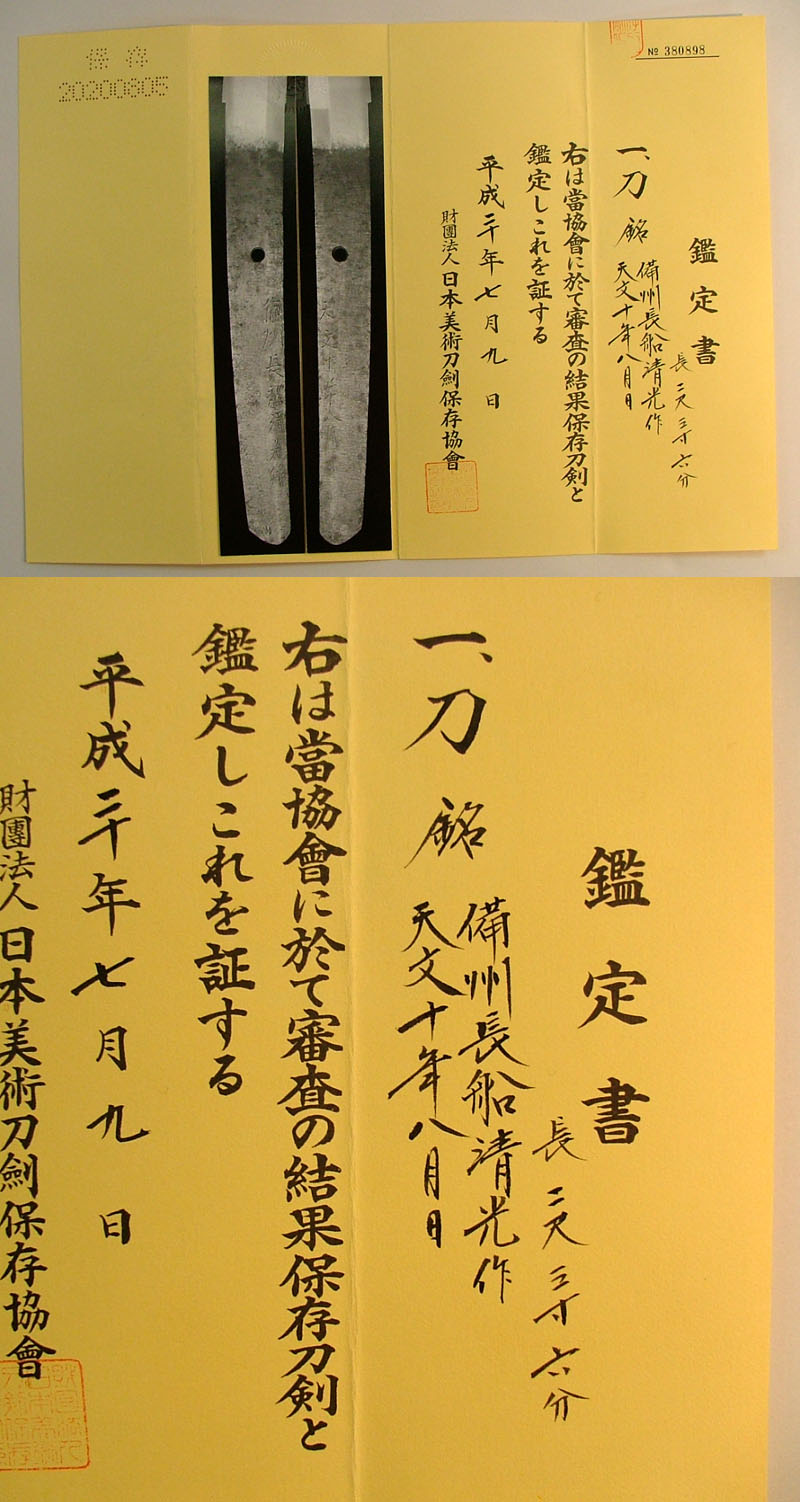 保存
20200805
№ 380898
鑑定書
一、刀 銘 備州長船清光作
天文十年八月日
長 二尺三寸六分
右は當協會に於て審査の結果保存刀剣と
鑑定しこれを証する
平成二十年七月九日
財團法人 日本美術刀劍保存協會
鑑定書
一、刀 銘 備州長船清光作
天文十年八月日
長 二尺三寸六分
右は當協會に於て審査の結果保存刀剣と
鑑定しこれを証する
平成二十年七月九日
財團法人 日本美術刀劍保存協會